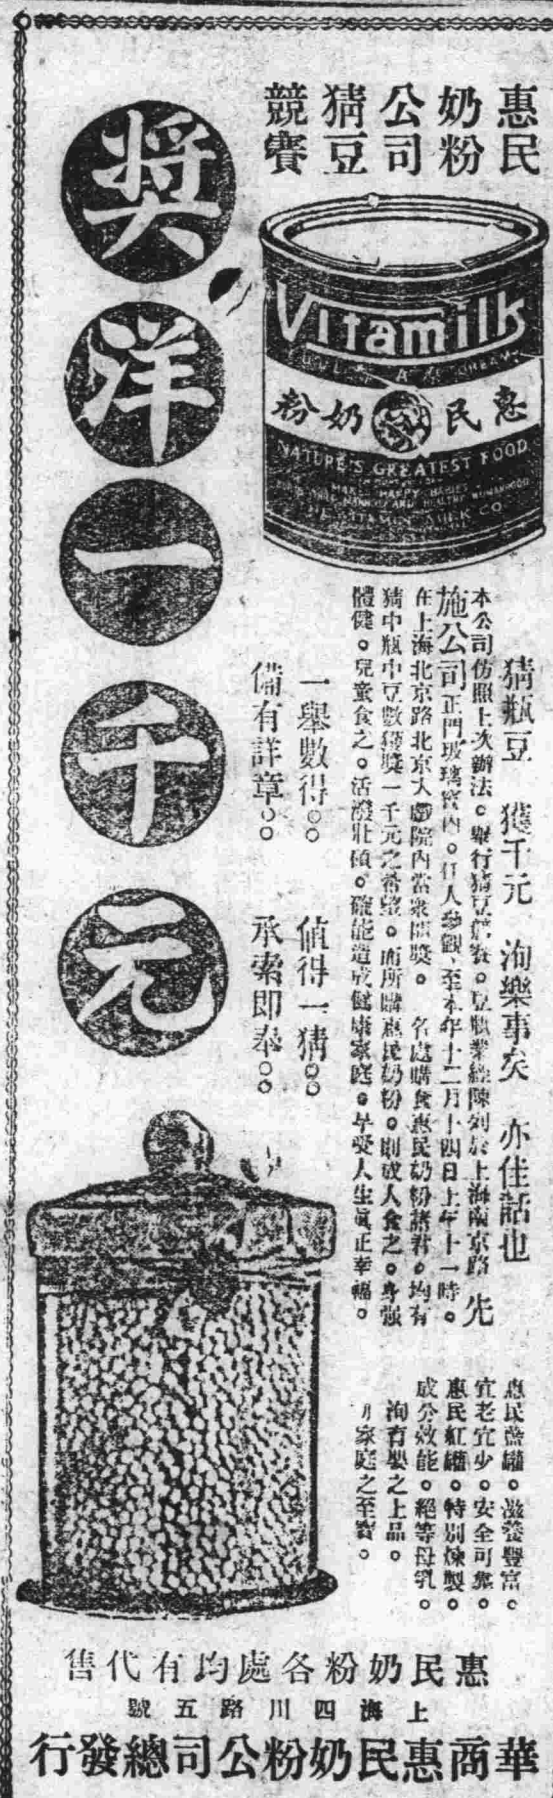 惠民
奶粉
公司
猜豆
競賽
獎洋一千元
Vitamilk
惠民奶粉
NATURE'S GREATEST FOOD
猜瓶豆 獲千元 洵樂事矣 亦佳話也
本公司仿照上次辦法。舉行猜豆競賽。豆瓶業經陳列於上海南京路先
施公司正門玻璃窗內。任人參觀、至本年十二月十四日上午十一時。
在上海北京路北京大戲院內當衆開獎。 各處購食惠民奶粉諸君。均有
猜中瓶中豆數獲獎一千元之希望。而所購惠民奶粉。則成人食之。身强
體健。兒童食之。活潑壯碩。確能造成健康家庭。早受人生真正幸福。
一舉數得。。 值得一猜。。
備有詳章。。 承索即奉。。
惠民藍罐。滋養豐富。
宜老宜少。安全可靠。
惠民紅罐。特別煉製。
成分效能。絕等母乳。
洵育嬰之上品。
家庭之至寶。
惠民奶粉各處均有代售
上海四川路五號
華商惠民奶粉公司總發行